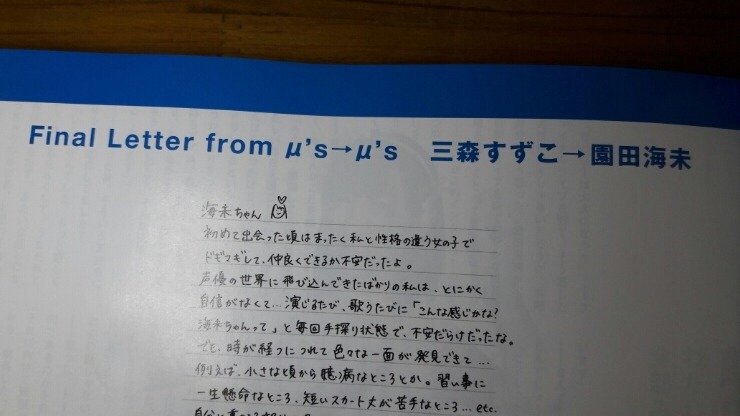 Final Letter from μ's→μ's　三森すずこ→園田海未
海未ちゃん
初めて出会った頃はまったく私と性格の違う女の子で
ドギマギして、仲良くできるか不安だったよ。
声優の世界に飛び込んできたばかりの私は、とにかく
自信がなくて…演じるたび、歌うたびに「こんな感じかな?
海未ちゃんって」と毎回手探り状態で、不安だらけだったな。
でも、時が経つにつれて色々な一面が発見できて…
例えば、小さな頃から臆病なところとか。習い事に
一生懸命なところ、短いスカート丈が苦手なところ…etc.